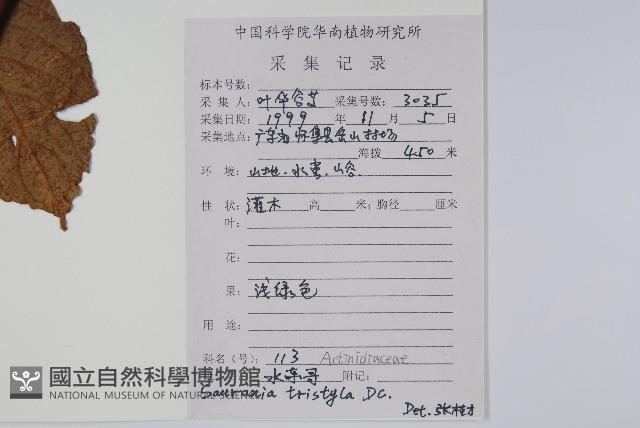 中国科学院华南植物研究所
采集记录
标本号数:
采集人: 叶华谷等 采集号数: 3035
采集日期: 1999 年 11 月 5 日
采集地点: 广东省怀集县岳山林场
海拨 450 米
环境: 山地.水旁.山谷
性状: 灌木 高 米; 胸径 厘米
叶:
花:
果: 浅绿色
用途:
科名(号): 113 Actinidiaceae
水东哥 附记:
Saurauia tristyla DC.
Det. 张桂才
國立自然科學博物館
NATIONAL MUSEUM OF NATURAL SCIENCE